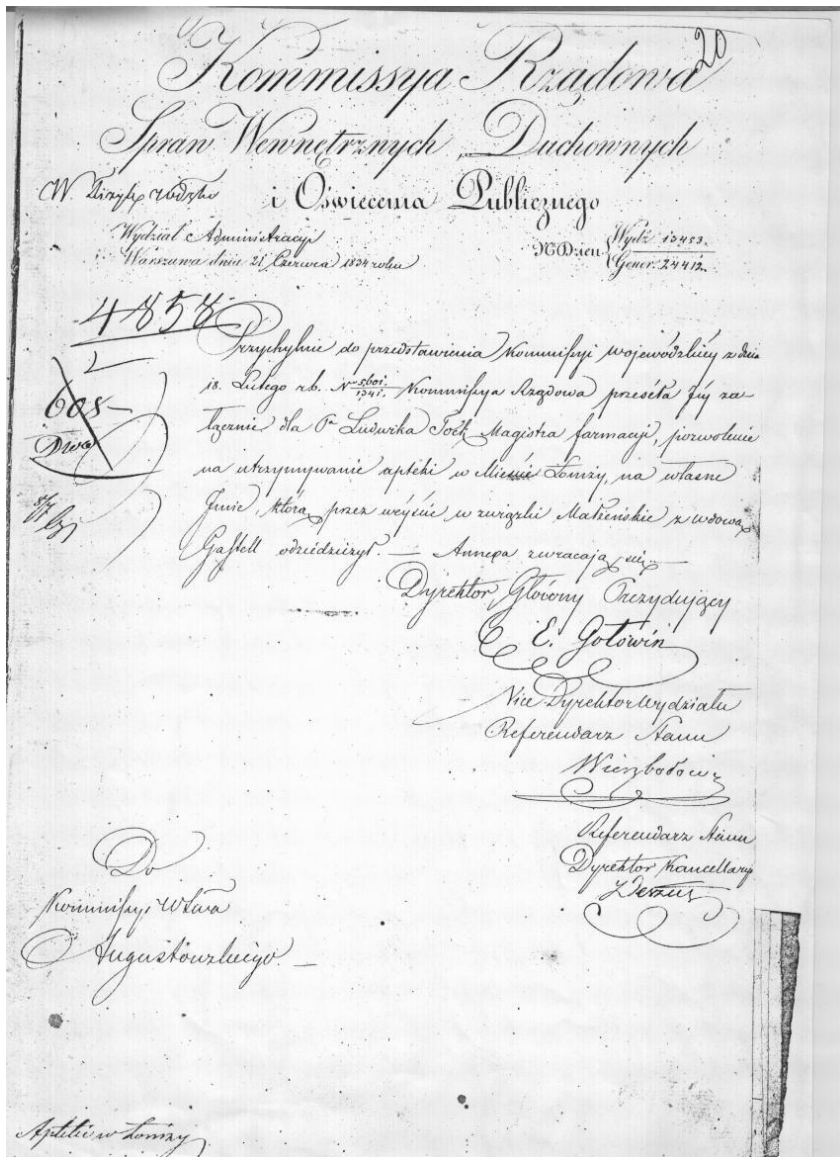 20
Kommissya Rządowa
Spraw Wewnętrznych, Duchownych
i Oświecenia Publicznego
W.
Wydział Administracyi
Warszawa dnia 21 Czerwca 1834 roku
N Dzien: Wydz. 13453.
Gener. 24412.
4858
605
Przychylnie do przedstawienia Kommissyi Wojewódzkiey z dnia
18. Lutego r.b. N 5601./1341. Kommissya Rządowa przeséła Jéy za-
łącznie dla Pa Ludwika Magistra farmacji, pozwolenie
na utrzymywanie apteki w Mieście Łomży, na własne
Imie, którą przez weyście w związki Małżeńskie z wdową
Gastell odziedziczył. — Annexa zwracają się —
Dyrektor Główny Prezydujący
E. Gołowin
Vice Dyrektor Wydziału
Referendarz Stanu
Referendarz Stanu
Dyrektor Kancellaryi
Do
Kommissyi Wtwa
Augustowskiego —
Apteki w Łomży